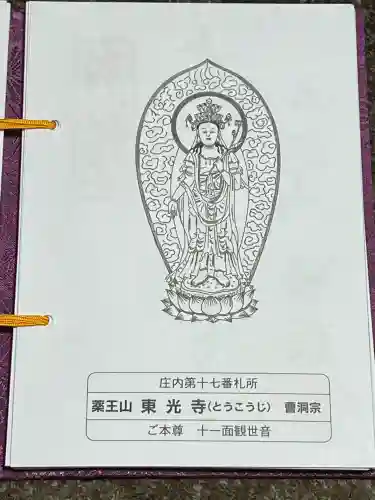 庄内第十七番札所
薬王山 東光寺(とうこうじ) 曹洞宗
ご本尊 十一面観世音